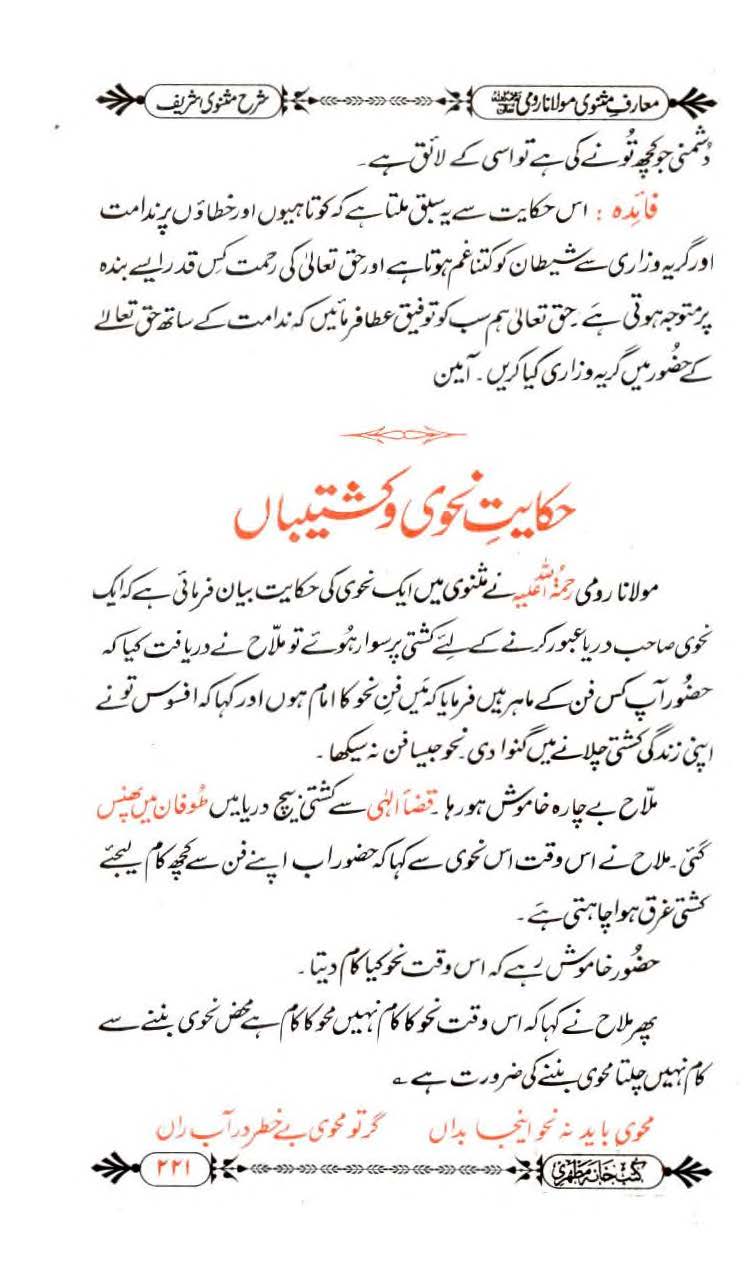 معارفِ مثنوی مولانا رومی رحمۃ اللہ علیہ
شرح مثنوی شریف
دُشمنی جو کچھ تُو نے کی ہے تو اسی کے لائق ہے۔
فائدہ : اس حکایت سے یہ سبق ملتا ہے کہ کوتاہیوں اور خطاؤں پر ندامت
اور گریہ وزاری سے شیطان کو کتنا غم ہوتا ہے اور حق تعالیٰ کی رحمت کِس قدر ایسے بندہ
پر متوجہ ہوتی ہے۔ حق تعالیٰ ہم سب کو توفیق عطا فرمائیں کہ ندامت کے ساتھ حق تعالےٰ
کے حضُور میں گریہ وزاری کیا کریں۔ آمین
حکایتِ نحوی و کشتیباں
مولانا رومی رحمۃُ اللہ علیہ نے مثنوی میں ایک نحوی کی حکایت بیان فرمائی ہے کہ ایک
نحوی صاحب دریا عبور کرنے کے لئے کشتی پر سوار ہُوئے تو ملّاح نے دریافت کیا کہ
حضُور آپ کس فن کے ماہر ہیں فرمایا کہ مَیں فنِ نحو کا امام ہوں اور کہا کہ افسوس تو نے
اپنی زندگی کشتی چلانے میں گنوا دی۔ نحو جیسا فن نہ سیکھا۔
ملّاح بے چارہ خاموش ہو رہا۔ قضأ الٰہی سے کشتی بیچ دریا میں طُوفان میں پھنس
گئی۔ ملاح نے اس وقت اس نحوی سے کہا کہ حضور اب اپنے فن سے کچھ کام لیجئے
کشتی غرق ہوا چاہتی ہَے۔
حضُور خاموش رہے کہ اس وقت نحو کیا کام دیتا۔
پھر ملاح نے کہا کہ اس وقت نحو کا کام نہیں محو کا کام ہے محض نحوی بننے سے
کام نہیں چلتا محوی بننے کی ضرورت ہے ؎
محوی باید نہ نحو اینجا بداں گر تو محوی بے خطر در آب راں
کتب خانہ مظہری
۲۲۱